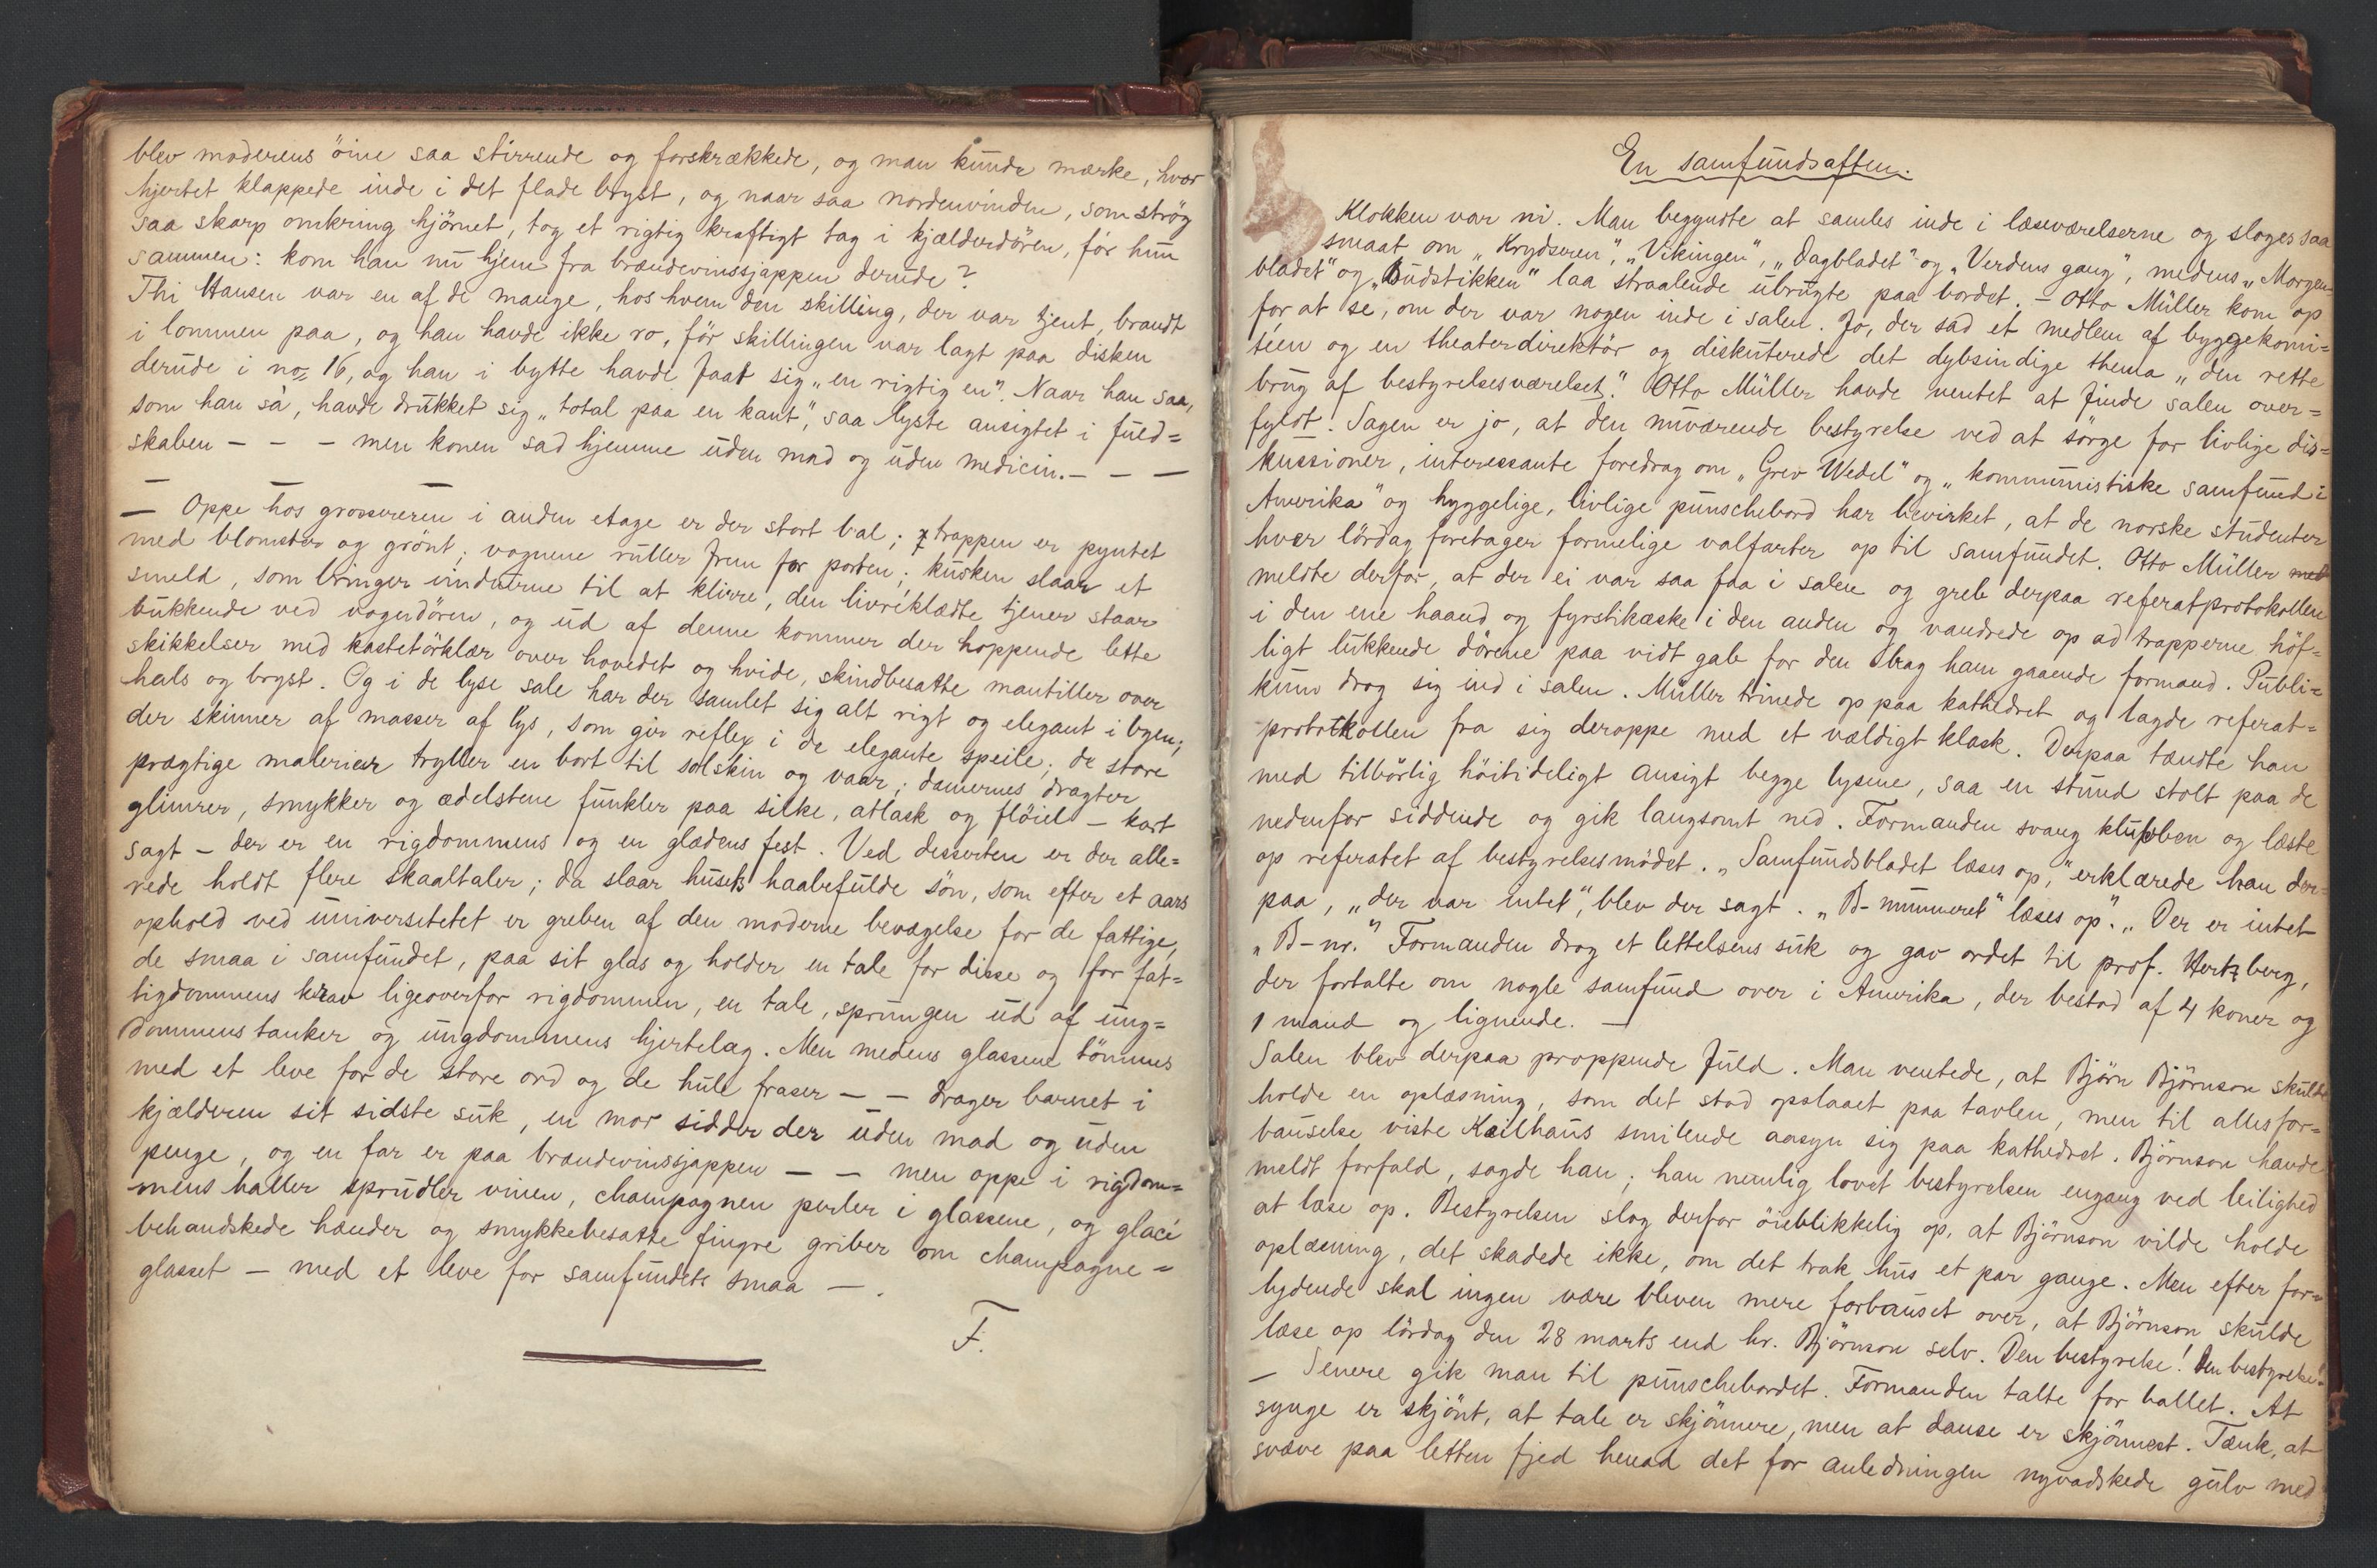 blev moderens öine saa stirrende og forskrækkede, og man kunde mærke, hvor
hjertet klappede inde i det flade bryst, og naar saa nordenvinden, som strög
saa skarp omkring hjörnet, tog et rigtig kraftigt tag i kjælderdören, för hun
sammen: kom han nu hjem fra brændevinssjappen derude?
Thi Hansen var en af de mange, hos hvem den skilling, der var tjent, brandt
i lommen paa, og han havde ikke ro, för skillingen var lagt paa disken
derude i no 16, og han i bytte havde faat sig „en rigtig en“. Naar han saa,
som han sa', havde drukket sig „total paa en kant“, saa lyste ansigtet i fuld=
skaben – – – men konen sad hjemme uden mad og uden medicin. – – –
– – –
— Oppe hos grossereren i anden etage er der stort bal; trappen er pyntet
med blomster og grönt; vognene ruller frem for porten; kusken slaar et
smeld, som bringer vinduerne til at klirre, den livréklædte tjener staar
bukkende ved vogndören, og ud af denne kommer der hoppende lette
skikkelser med kastetörklær over hovedet og hvide, skindbesatte mantiller over
hals og bryst. Og i de lyse sale har der samlet sig alt rigt og elegant i byen;
der skinner af masser af lys, som giv reflex i de elegante speile; de store
prægtige malerier tryller en bort til solskin og vaar; damernes dragter
glimrer, smykker og ædelstene funkler paa silke, atlask og flöiel – kort
sagt – der er en rigdommens og en glædens fest. Ved desserten er der alle=
rede holdt flere skaaltaler; da slaar husets haabefulde sön, som efter et aars
ophold ved universitetet er greben af den moderne bevægelse for de fattige,
de smaa i samfundet, paa sit glas og holder en tale for disse og for fat=
tigdommens krav ligeoverfor rigdommen, en tale, sprungen ud af ung=
dommens tanker og ungdommens hjertelag. Men medens glassene tömmes
med et leve for de store ord og de hule fraser – – drager barnet i
kjælderen sit sidste suk, en mor sidder der uden mad og uden
penge, og en far er paa brændevinssjappen – – men oppe i rigdom=
mens haller sprudler vinen, champagnen perler i glassene, og glacé
behandskede hænder og smykkebesatte fingre griber om champagne=
glasset – med et leve for samfundets smaa – .
F.
En samfundsaften.
Klokken var ni. Man begyndte at samles inde i læseværelserne og sloges saa
smaat om „Krydseren“, „Vikingen“, „Dagbladet“ og „Verdens gang“, medens „Morgen=
bladet“ og „Budstikken“ laa straalende ubrugte paa bordet. – Otto Müller kom op
for at se, om der var nogen inde i salen. Jo, der sad et medlem af byggekomi=
téen og en theaterdirektör og diskuterede det dybsindige thema „den rette
brug af bestyrelsesværelset.“ Otto Müller havde ventet at finde salen over=
fyldt. Sagen er jo, at den nuværende bestyrelse ved at sörge for livlige dis=
kussioner, interessante foredrag om „Grev Wedel“ og „kommunistiske samfund i
Amerika“ og hyggelige, livlige punschebord har bevirket, at de norske studenter
hver lördag foretager formelige valfarter op til samfundet. Otto Müller med
meldte derfor, at der ei var saa faa i salen og greb derpaa referatprotokollen
i den ene haand og fyrstikæske i den anden og vandrede op ad trapperne höf=
ligt lukkende dörene paa vidt gab for den bag ham gaaende formand. Publi=
kum drog sig ind i salen. Müller trinede op paa kathedret og lagde referat=
protokollen fra sig deroppe med et vældigt klask. Derpaa tændte han
med tilbörlig höitideligt ansigt begge lysene, saa en stund stolt paa de
nedenfor siddende og gik langsomt ned. Formanden svang klubben og læste
op referatet af bestyrelsesmödet. „Samfundsbladet læses op,“ erklærede han der=
paa, „der var intet“, blev der sagt. „B-nummeret“ læses op“. „Der er intet
„B-nr.“ Formanden drog et lettelsens suk og gav ordet til prof. Hertzberg,
der fortalte om nogle samfund over i Amerika, der bestod af 4 koner og
1 mand og lignende. –
Salen blev derpaa proppende fuld. Man ventede, at Björn Björnson skulde
holde en oplæsning, som det stod opslaaet paa tavlen, men til alles for=
bauselse viste Keilhaus smilende aasyn sig paa kathedret. Björnson havde
meldt forfald, sagde han; han nemlig lovet bestyrelsen engang ved leilighed
at læse op. Bestyrelsen slog derfor öieblikkelig op, at Björnson vilde holde
oplæsning, det skadede ikke, om det trak hus et par gange. Men efter for=
lydende skal ingen være bleven mere forbauset over, at Björnson skulde
læse op lördag den 28 marts end hr. Björnson selv. Den bestyrelse! Den bestyrelse!
– Senere gik man til punschebordet. Formanden talte for ballet. At
synge er skjönt, at tale er skjönnere, men at danse er skjönnest. Tænk, at
svæve paa letten fjed henad det for anledningen nyvadskede gulv med